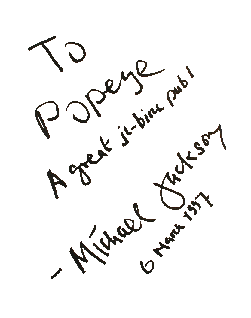 To
Popeye
A great pub!
- Michael Jackson
6 March 1997